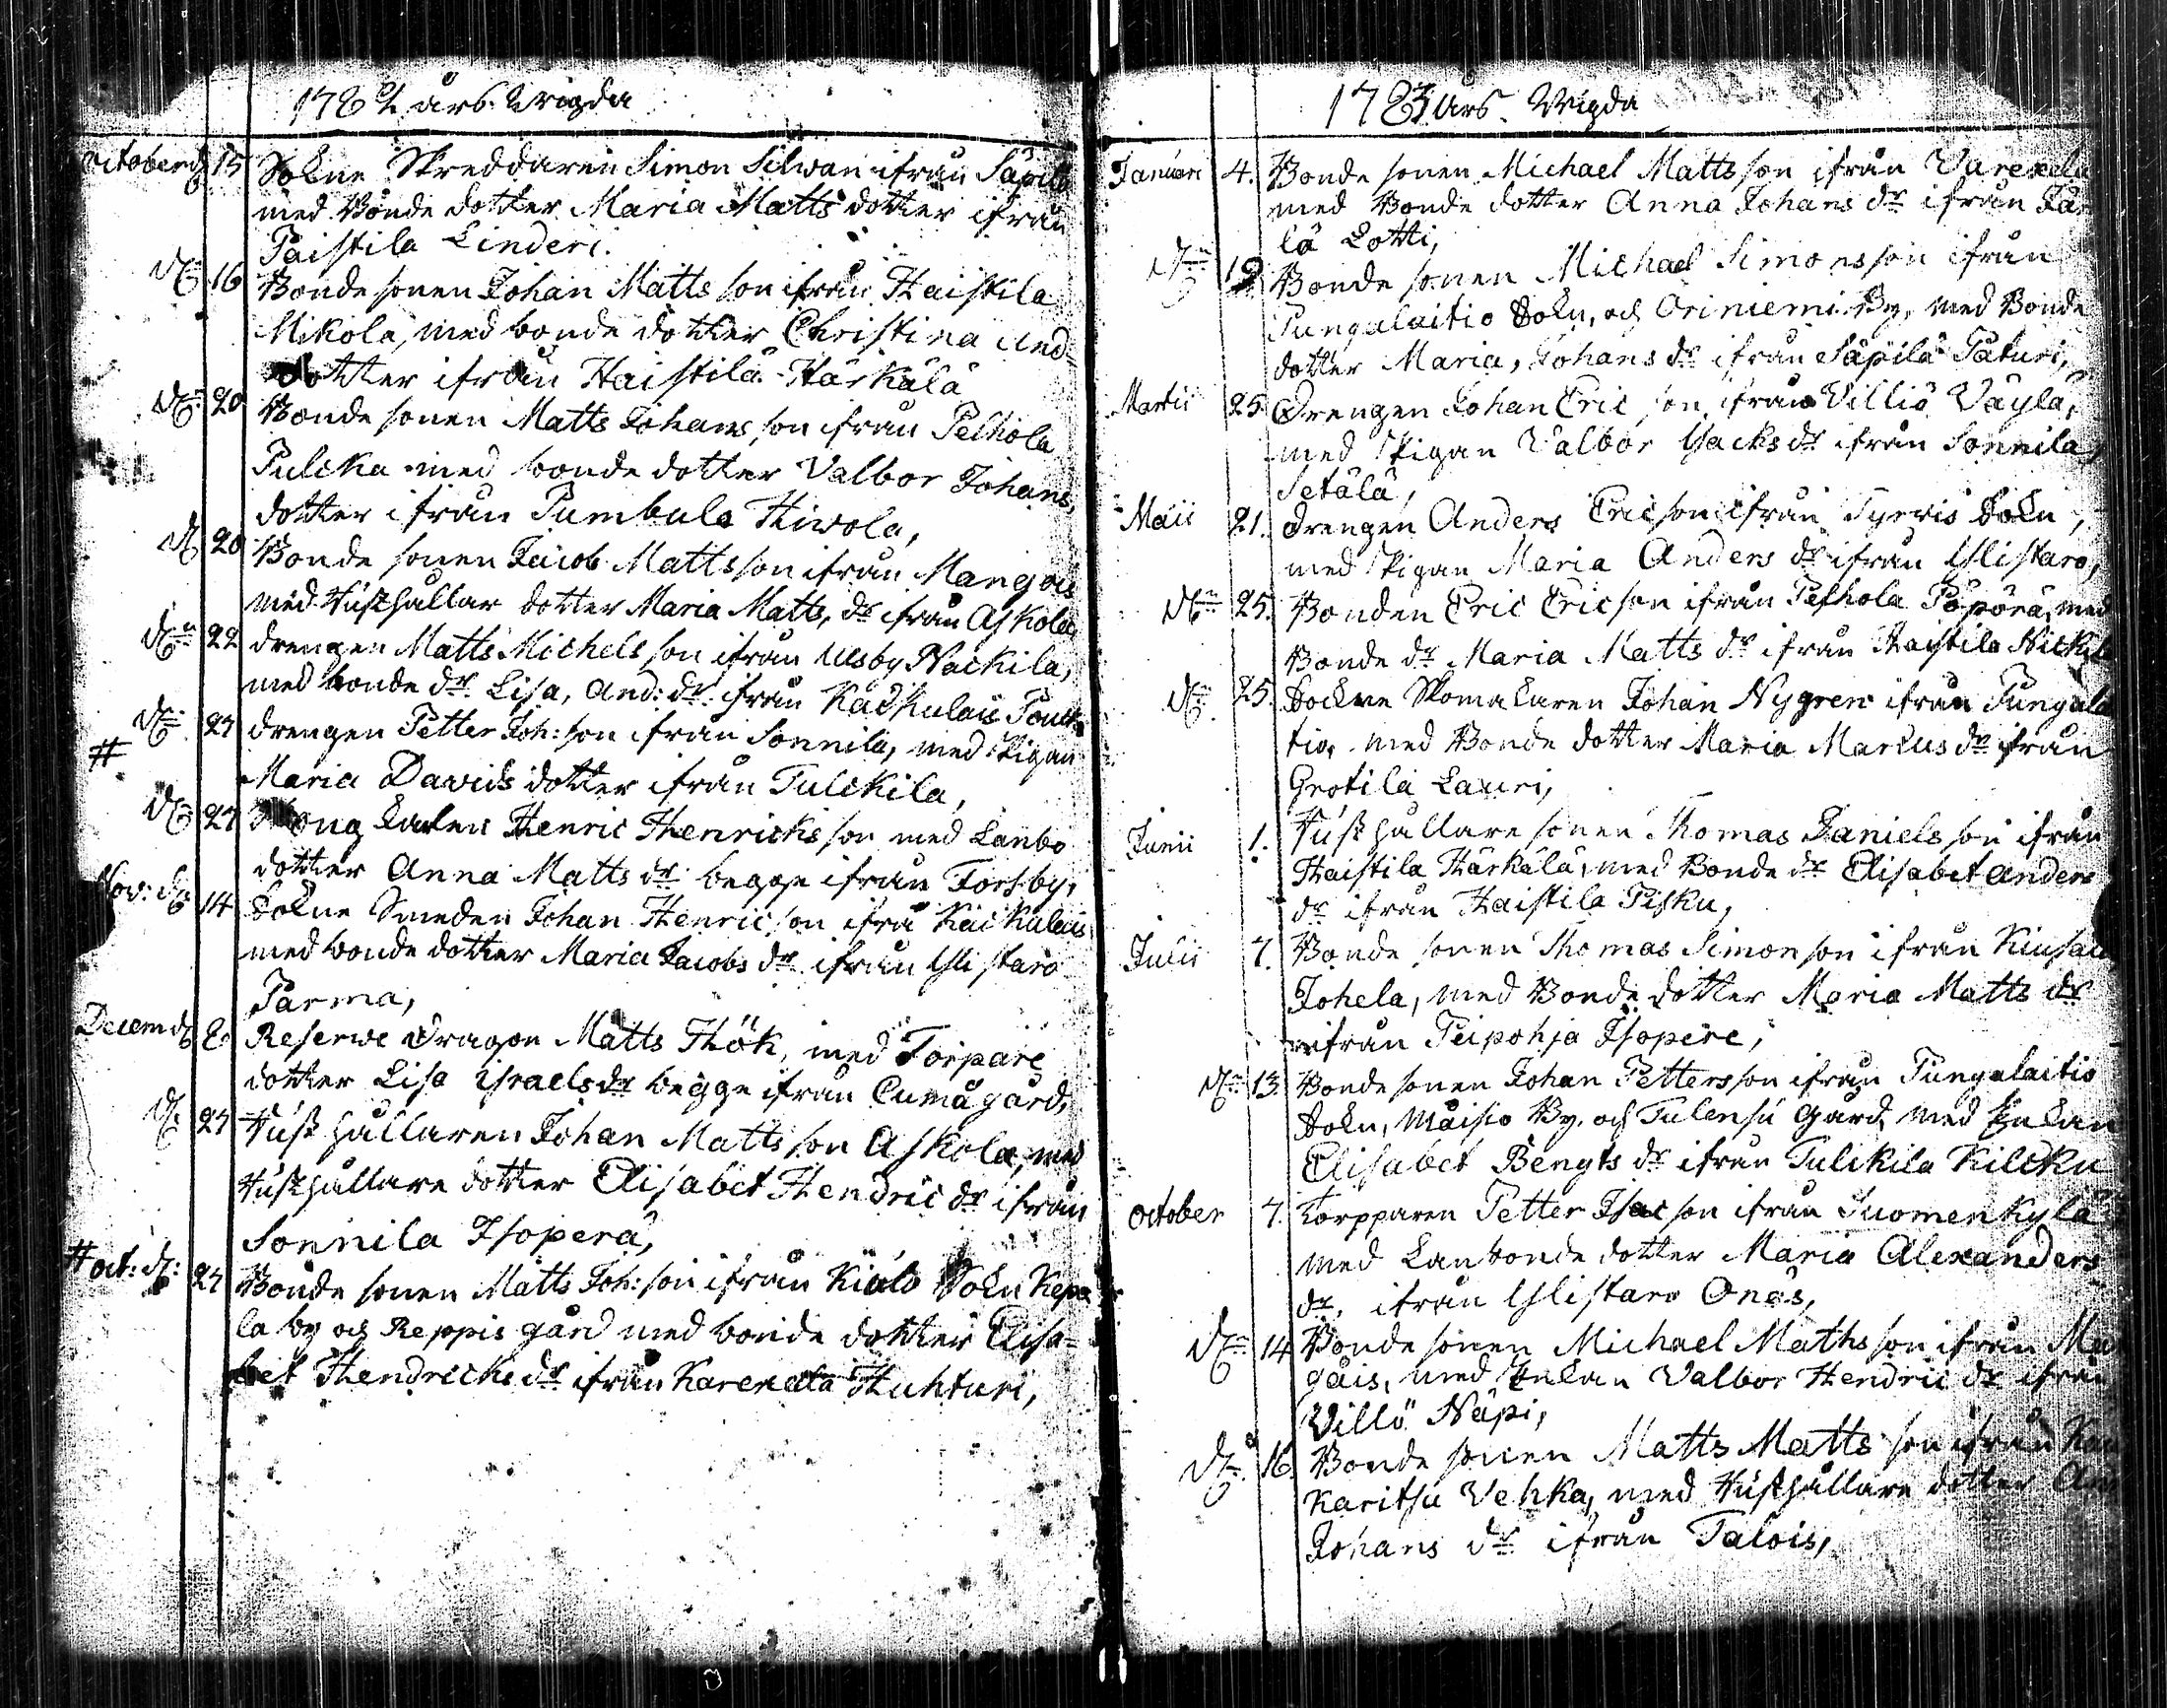 1782 års Vrigda
October d: 15 Sokne Skreddaren Simon Silwan ifrån Säpilä
med Bonde dotter Maria Matts dotter ifrån
Paistila Linderi.
d: 16 Bonde sonen Johan Matts son ifrån Haistila
Mikola, med bonde dotter Christina And=
dotter ifrån Haistila Härkälä
d: 20 Bonde sonen Matts Johans son ifrån Pelhola
Pulcka med bonde dotter Valbor Johans
dotter ifrån Pumbula Hiwola,
d: 20 Bonde sonen Jacob Mattsson ifrån Mangois
med Hußhållar dotter Maria Matts, dr ifrån Askola,
d: 22 drengen Matts Michels son ifrån Ulsby Nackila,
med bonde dr. Lisa, And: dr. ifrån
# d: 27 drengen Petter Joh: son ifrån Sonnila, med Pigan
Maria Davids dotter ifrån Tulckila,
d: 27 Henric Henricks son med Lanbo
dotter Anna Matts dr begge ifrån Forsby,
Nov: d: 14 Sokne Smeden Johan Henric son ifrå
med bonde dotter Maria Jacobs dr ifrån Ylistaro
Parma,
Decem d: 8. Reserve Dragon Matts Hök, med Torpare
dotter Lisa Israels dr begge ifrån Cumågård,
d: 27 Hußhållaren Johan Matts son Askola, med
Hußhållare dotter Elisabet Hendric dr ifrån
Sonnila Isopera,
# oct: d: 27 Bonde sonen Matts Joh: son ifrån Kiulo Sokn Kepo
la by och Reppis gård med bonde dotter Elisa=
bet Hendricks dr ifrån Karenela Huhturi,
1783 års Vrigda
Januari 4. Bonde sonen Michael Matts son ifrån
med Bonde dotter Anna Johans dr ifrån
lä Lotti,
d: 19 Bonde sonen Michael Simons son ifrån
Pungalaitio Sokn, och Oriniemi By, med Bonde
dotter Maria, Johans dr ifrån Säpilä Paturi,
Martii 25 Drengen Johan Eric son ifrån Villiö Väylä,
med Pigan Valbor Ysacks dr ifrån Sonnila
Setälä,
Maii 21. drengen Anders Ericson ifrån Tyrvis Sokn,
med Pigan Maria Anders dr ifrån Ylistaro,
d: 25. Bonden Eric Ericson ifrån Pelhola Päpörä, med
Bonde dr Maria Matts dr ifrån Haistila
d: 25. Sockne Skomakaren Johan Nygren ifrån Pungala
tio, med Bonde dotter Maria Markus dr ifrån
Grotila Lauri,
Junii 1. Hußhållare sonen Thomas Daniels son ifrån
Haistila Härkälä, med Bonde dr Elisabet Anders
dr ifrån Haistila Pisku,
Julii 7. Bonde sonen Thomas Simon son ifrån
Johela, med Bonde dotter Maria Matts dr
ifrån Peipohja Isopere,
d: 13. Bonde sonen Johan Petters son ifrån Pungalaitio
Sokn, Maisio By, och Tulensu Gård, med Enkan
Elisabet Bengts dr ifrån Tulckila Kilcku
October 7. Torpparen Petter Isac son ifrån Suomenkylä
med Lanbonde dotter Maria Alexanders
dr, ifrån Ylistaro Onas,
d: 14 Bonde sonen Michael Maths son ifrån
gäis, med Enkan Valbor Hendric dr ifrån
Villö Näpi,
d: 16. Bonde sonen Matts Matts son ifrån
Karitsu Vehka, med Hußhållare dotter
Johans dr ifrån Talois,